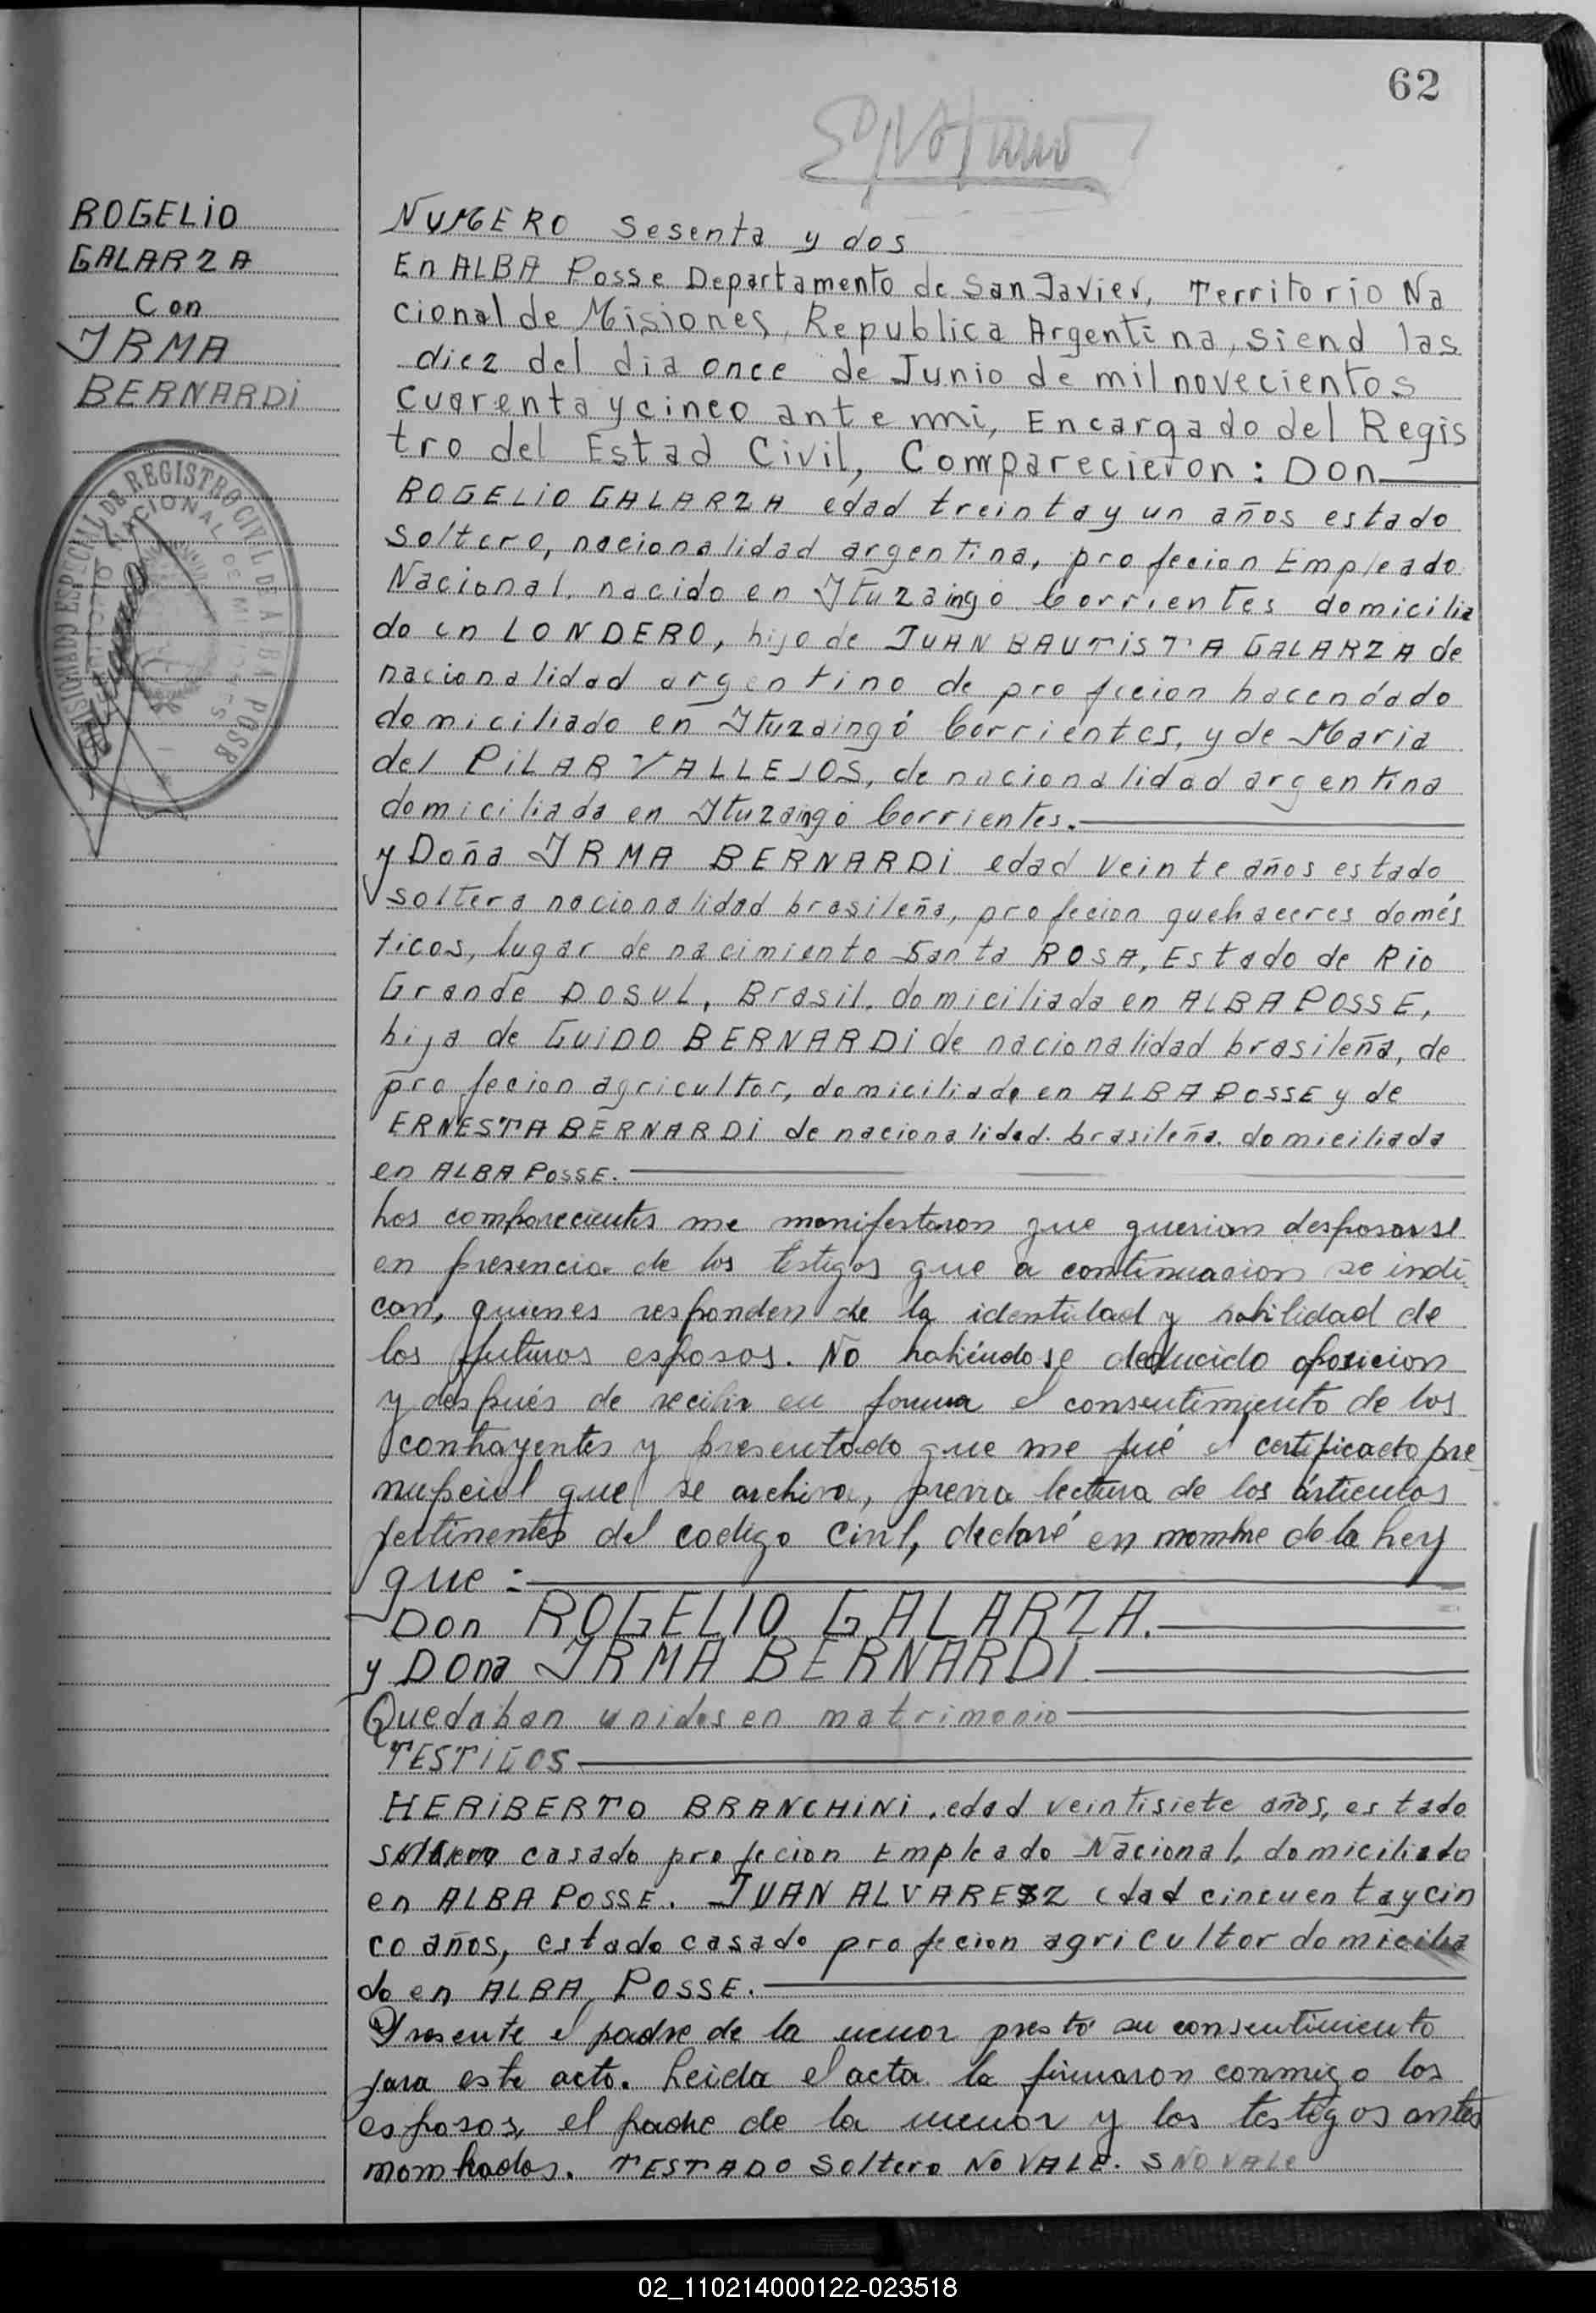 62
ROGELIO
GALARZA
Con
IRMA
BERNARDI
COMISIONADO ESPECIAL DE REGISTRO CIVIL DE ALBA POSSE
NUMERO Sesenta y dos
En ALBA Posse Departamento de San Javier, Territorio Na
cional de Misiones, Republica Argentina, siend las
diez del dia once de Junio de mil novecientos
cuarenta y cinco ante mi, Encargado del Regis
tro del Estad Civil, Comparecieron: Don
ROGELIO GALARZA edad treinta y un años estado
Soltero, nacionalidad argentina, profecion Empleado
Nacional, nacido en Ituzaingó Corrientes domicilia
do en LONDERO, hijo de JUAN BAUTISTA GALARZA de
nacionalidad argentino de profecion hacendado
domiciliado en Ituzaingó Corrientes, y de Maria
del PILAR VALLEJOS, de nacionalidad argentina
domiciliada en Ituzaingó Corrientes.
y Doña IRMA BERNARDI edad veinte años estado
soltera nacionalidad brasileña, profecion quehaceres domés
ticos, lugar de nacimiento Santa ROSA, Estado de Rio
Grande DOSUL, Brasil, domiciliada en ALBA POSSE,
hija de GUIDO BERNARDI de nacionalidad brasileña, de
profecion agricultor, domiciliado en ALBA POSSE y de
ERNESTA BERNARDI de nacionalidad brasileña domiciliada
en ALBA POSSE.
Los comparecientes me manifestaron que querian desposarse
en presencia de los testigos que a continuacion se indi
can, quienes responden de la identidad y habilidad de
los futuros esposos. No habiéndose deducido oposicion
y después de recibir en forma el consentimiento de los
contrayentes y presentado que me fué el certificado pre
nupcial que se archiva, previa lectura de los árticulos
pertinentes del codigo Civil, declaré en nombre de la Ley
que:
Don ROGELIO GALARZA.
y Dona IRMA BERNARDI
Quedaban unidos en matrimonio
TESTIGOS
HERIBERTO BRANCHINI, edad veintisiete años, estado
soltero casado profecion Empleado Nacional, domiciliado
en ALBA POSSE. JUAN ALVARESZ edad cincuenta y cin
co años, estado casado profecion agricultor domicilia
do en ALBA POSSE.
Presente el padre de la menor prestó su consentimiento
para este acto. Leida el acta la firmaron conmigo los
esposos, el padre de la menor y los testigos antes
nombrados. TESTADO Soltero NO VALE. S NO VALE
02_110214000122-023518